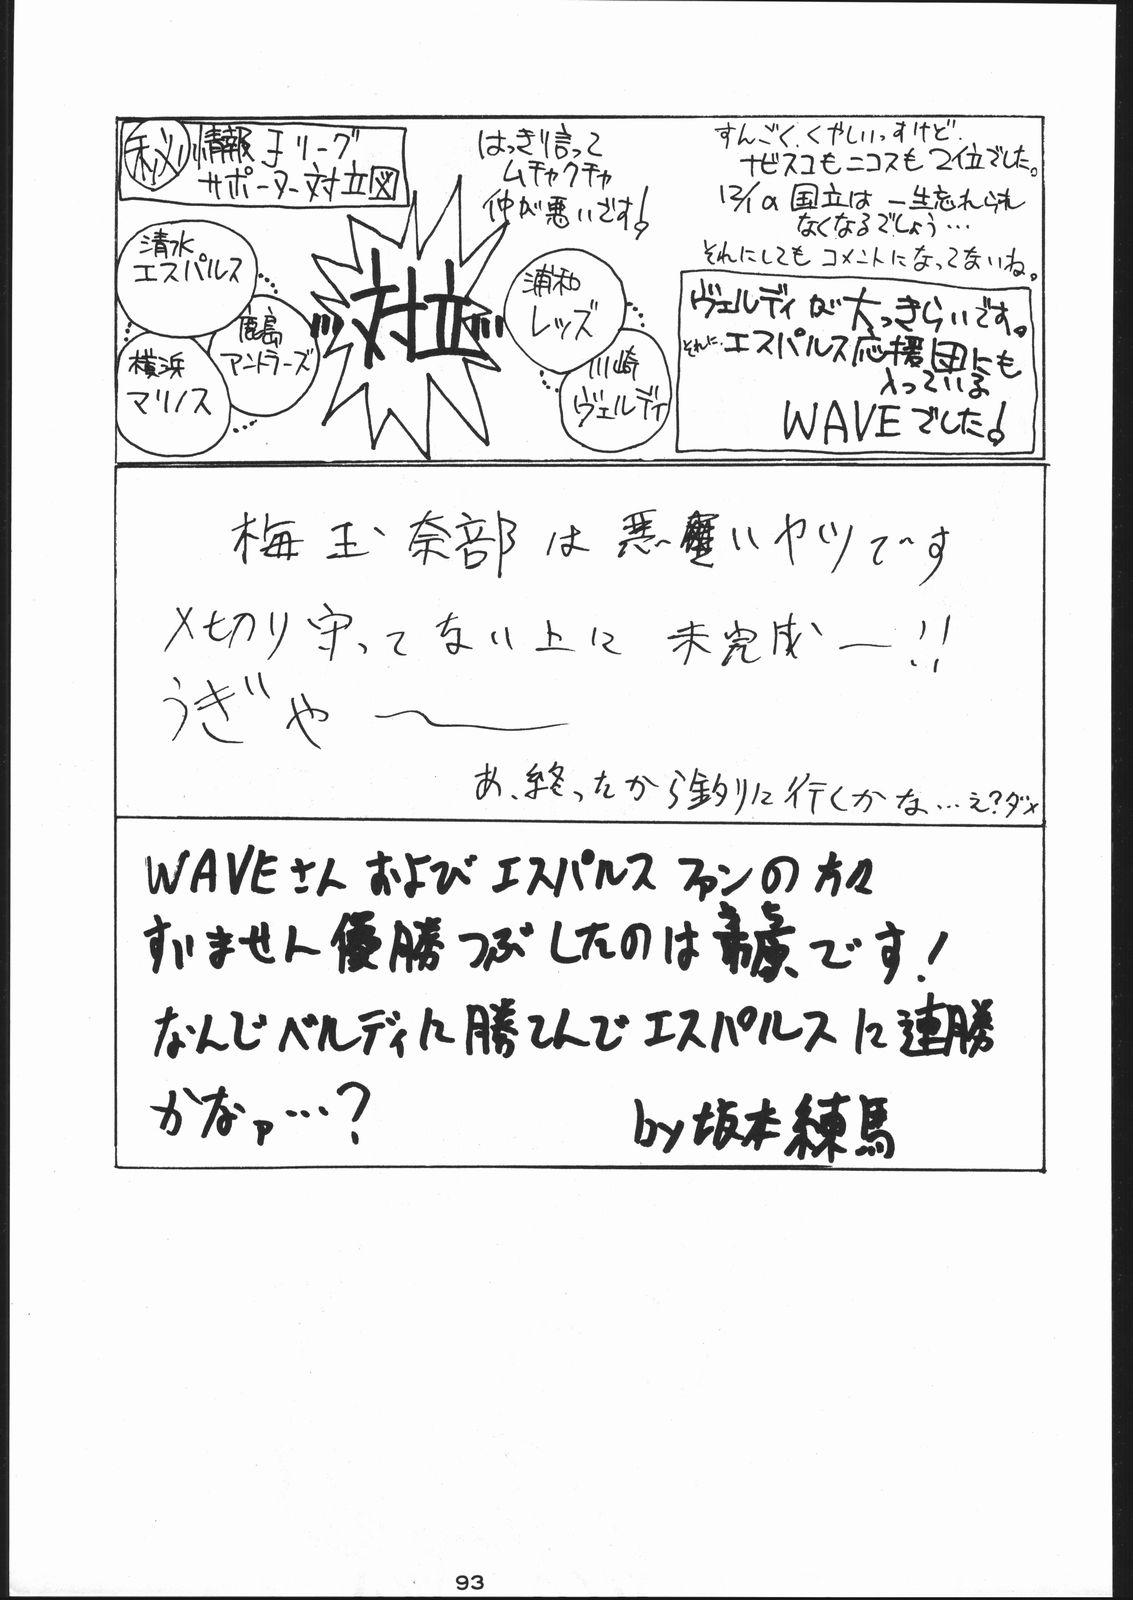 ㊙情報Jリーグ
サポーター対立図
清水
エスパルス
鹿島
アントラーズ
横浜
マリノス
対立
はっきり言って
ムチャクチャ
仲が悪いです!
浦和
レッズ
川崎
ヴェルディ
すんごく、くやしいっすけど、
ナビスコもニコスも2位でした。
国立は一生忘れられ
なくなるでしょう…
それにしてもコメントになってないね。
ヴェルディが大っきらいです。
それに、エスパルス応援団にも
入っている
WAVEでした!
梅玉奈部は悪いヤツです
〆切り守ってない上に未完成ー!!
うぎゃー
あ、終ったから釣りに行くかな…え?ダメ
WAVEさんおよびエスパルスファンの方々
すいません優勝つぶしたのはです!
なんでベルディに勝てんでエスパルスに連勝
かなァ…?
by坂本練馬
93